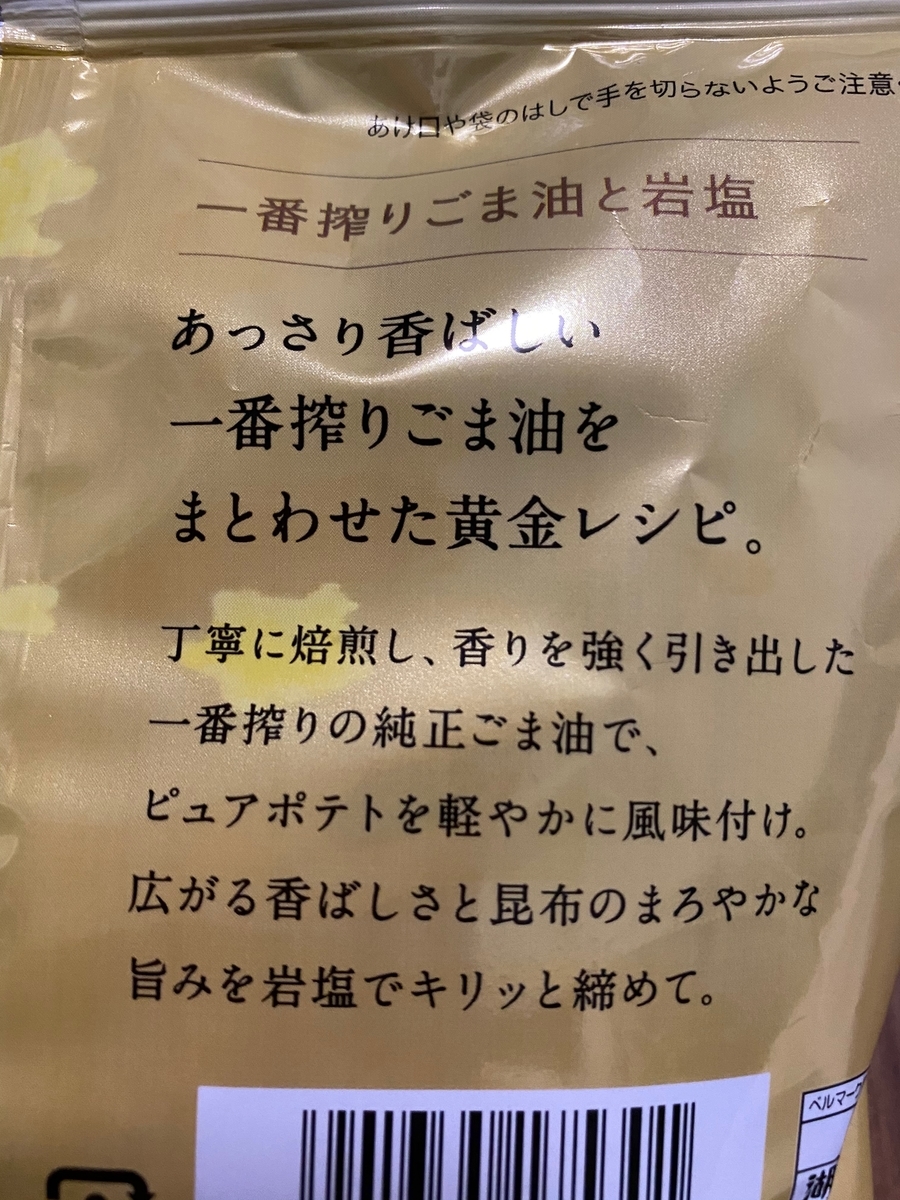 あけ口や袋のはしで手を切らないようご注意
一番搾りごま油と岩塩
あっさり香ばしい
一番搾りごま油を
まとわせた黄金レシピ。
丁寧に焙煎し、香りを強く引き出した
一番搾りの純正ごま油で、
ピュアポテトを軽やかに風味付け。
広がる香ばしさと昆布のまろやかな
旨みを岩塩でキリッと締めて。
ベルマーク
湖